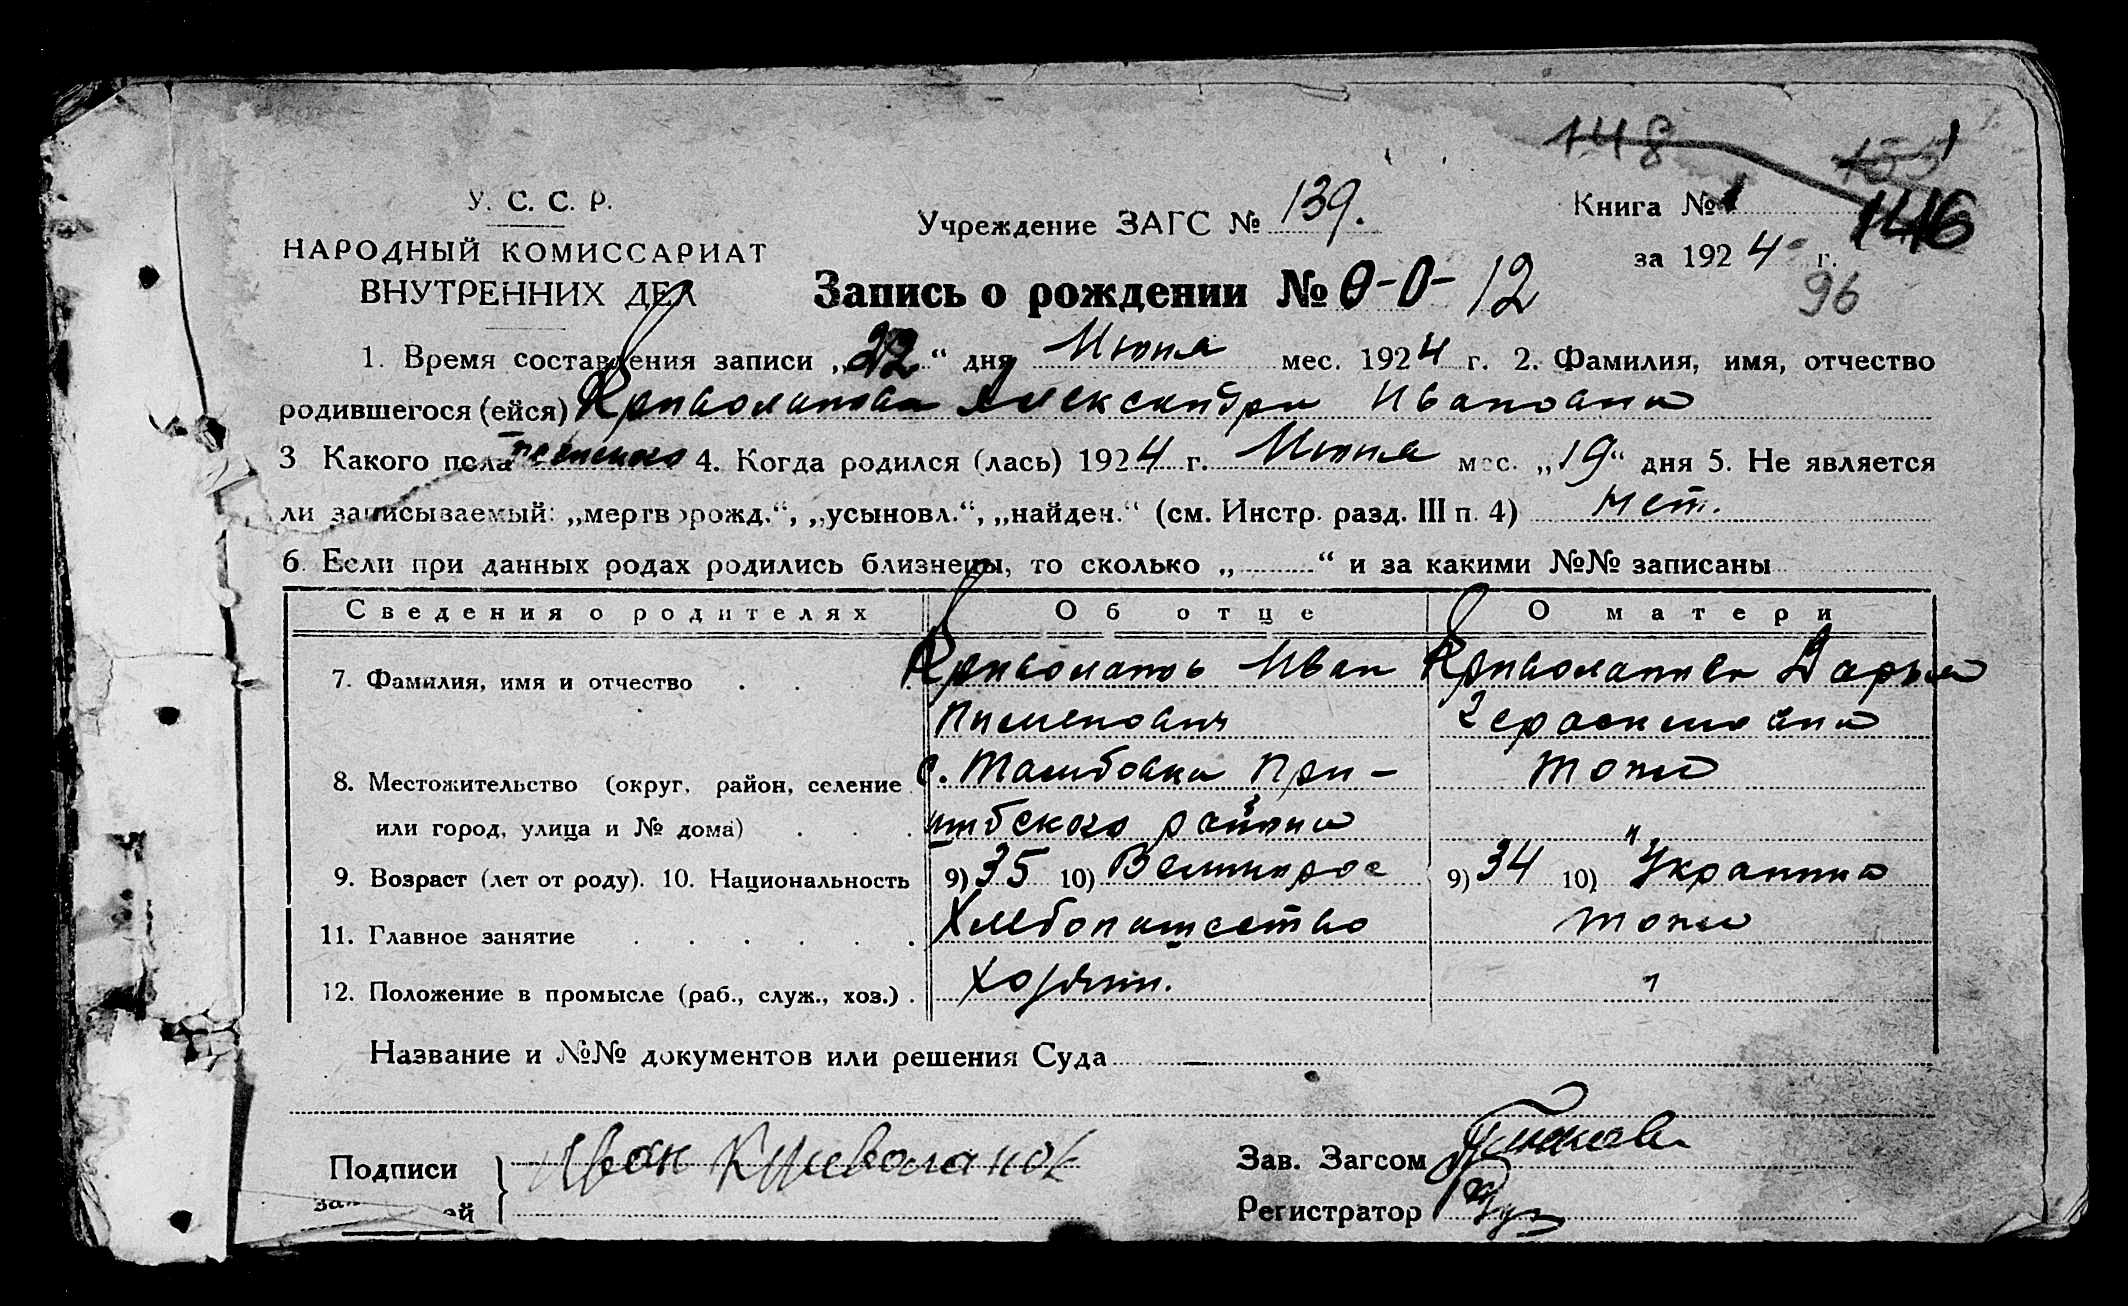 148
155
146
У. С. С. Р.
НАРОДНЫЙ КОМИССАРИАТ
ВНУТРЕННИХ ДЕЛ
Учреждение ЗАГС № 139.
Книга № 1
за 1924 г.
96
Запись о рождении № 0-0-12
1. Время составления записи „22“ дня Июня мес. 1924 г. 2. Фамилия, имя, отчество
родившегося (ейся) Криволапова Александра Ивановна
3 Какого пола женского 4. Когда родился (лась) 1924 г. Июня мес. „19“ дня 5. Не является
ли записываемый: „мертворожд.“, „усыновл.“, „найден.“ (см. Инстр. разд. III п. 4) нет.
6. Если при данных родах родились близнецы, то сколько „ “ и за какими №№ записаны
Сведения о родителях Об отце О матери
7. Фамилия, имя и отчество Криволапов Иван Криволапова Дарья
Пименович Герасимовна
8. Местожительство (округ, район, селение с. Тамбовка При- тоже
или город, улица и № дома) шибского района "
9. Возраст (лет от роду). 10. Национальность 9) 35 10) Великорос 9) 34 10) Украинка
11. Главное занятие Хлебопашество тоже
12. Положение в промысле (раб., служ., хоз.) хозяин. "
Название и №№ документов или решения Суда —
Подписи Иван Криволапов Зав. Загсом
Регистратор